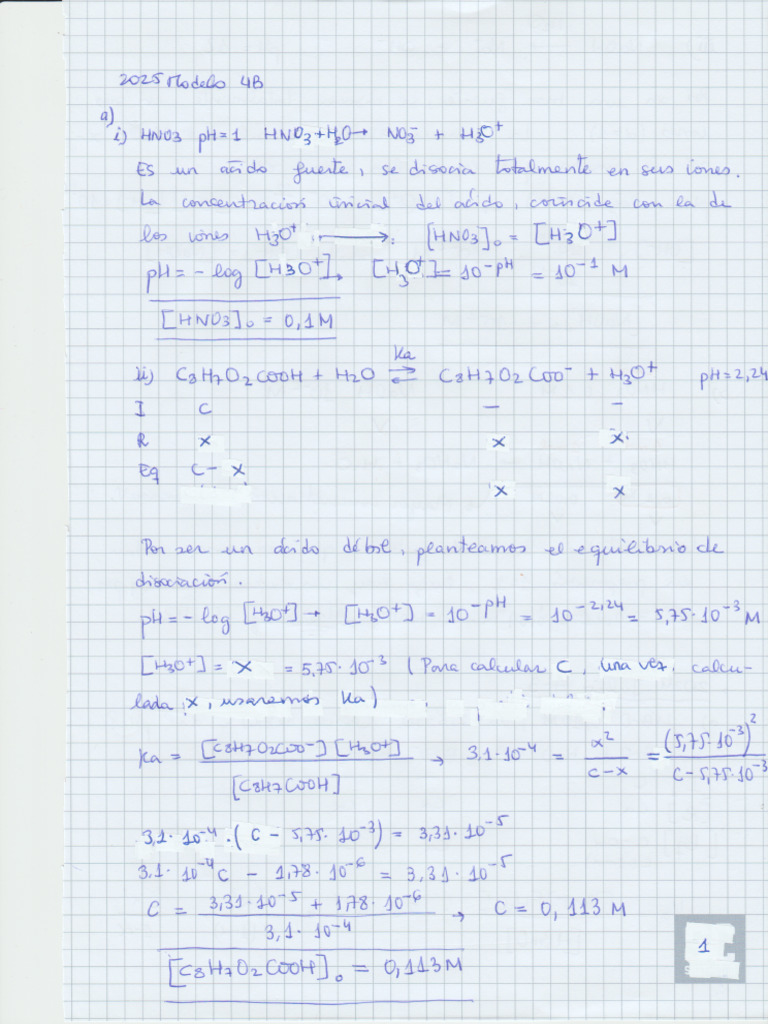 2025 Modelo 4B
a)
i) HNO3 pH=1 HNO3+H2O→ NO3⁻ + H3O⁺
Es un ácido fuerte, se disocia totalmente en sus iones.
La concentración inicial del ácido, coincide con la de
los iones H3O⁺ ⟶ [HNO3]₀ = [H3O⁺]
pH = - log [H3O⁺], [H3O⁺] = 10^-pH = 10^-1 M
[HNO3]₀ = 0,1M
ii) C8H7O2COOH + H2O ⇌ Ka C8H7O2COO⁻ + H3O⁺ pH=2,24
I C — –
R x x x.
Eq C - x
x x
Por ser un ácido débil, planteamos el equilibrio de
disociación.
pH = - log [H3O⁺] → [H3O⁺] = 10^-pH = 10^-2,24 = 5,75·10^-3 M
[H3O⁺] = x = 5,75·10^-3 (Para calcular C, una vez calcu-
lada x, usaremos Ka)
Ka = [C8H7O2COO⁻][H3O⁺] / [C8H7COOH] → 3,1·10^-4 = x² / (C-x) = (5,75·10^-3)² / (C-5,75·10^-3
3,1·10^-4·(C - 5,75·10^-3) = 3,31·10^-5
3,1·10^-4C - 1,78·10^-6 = 3,31·10^-5
C = (3,31·10^-5 + 1,78·10^-6) / 3,1·10^-4 → C = 0,113 M
[C8H7O2COOH]₀ = 0,113M
1